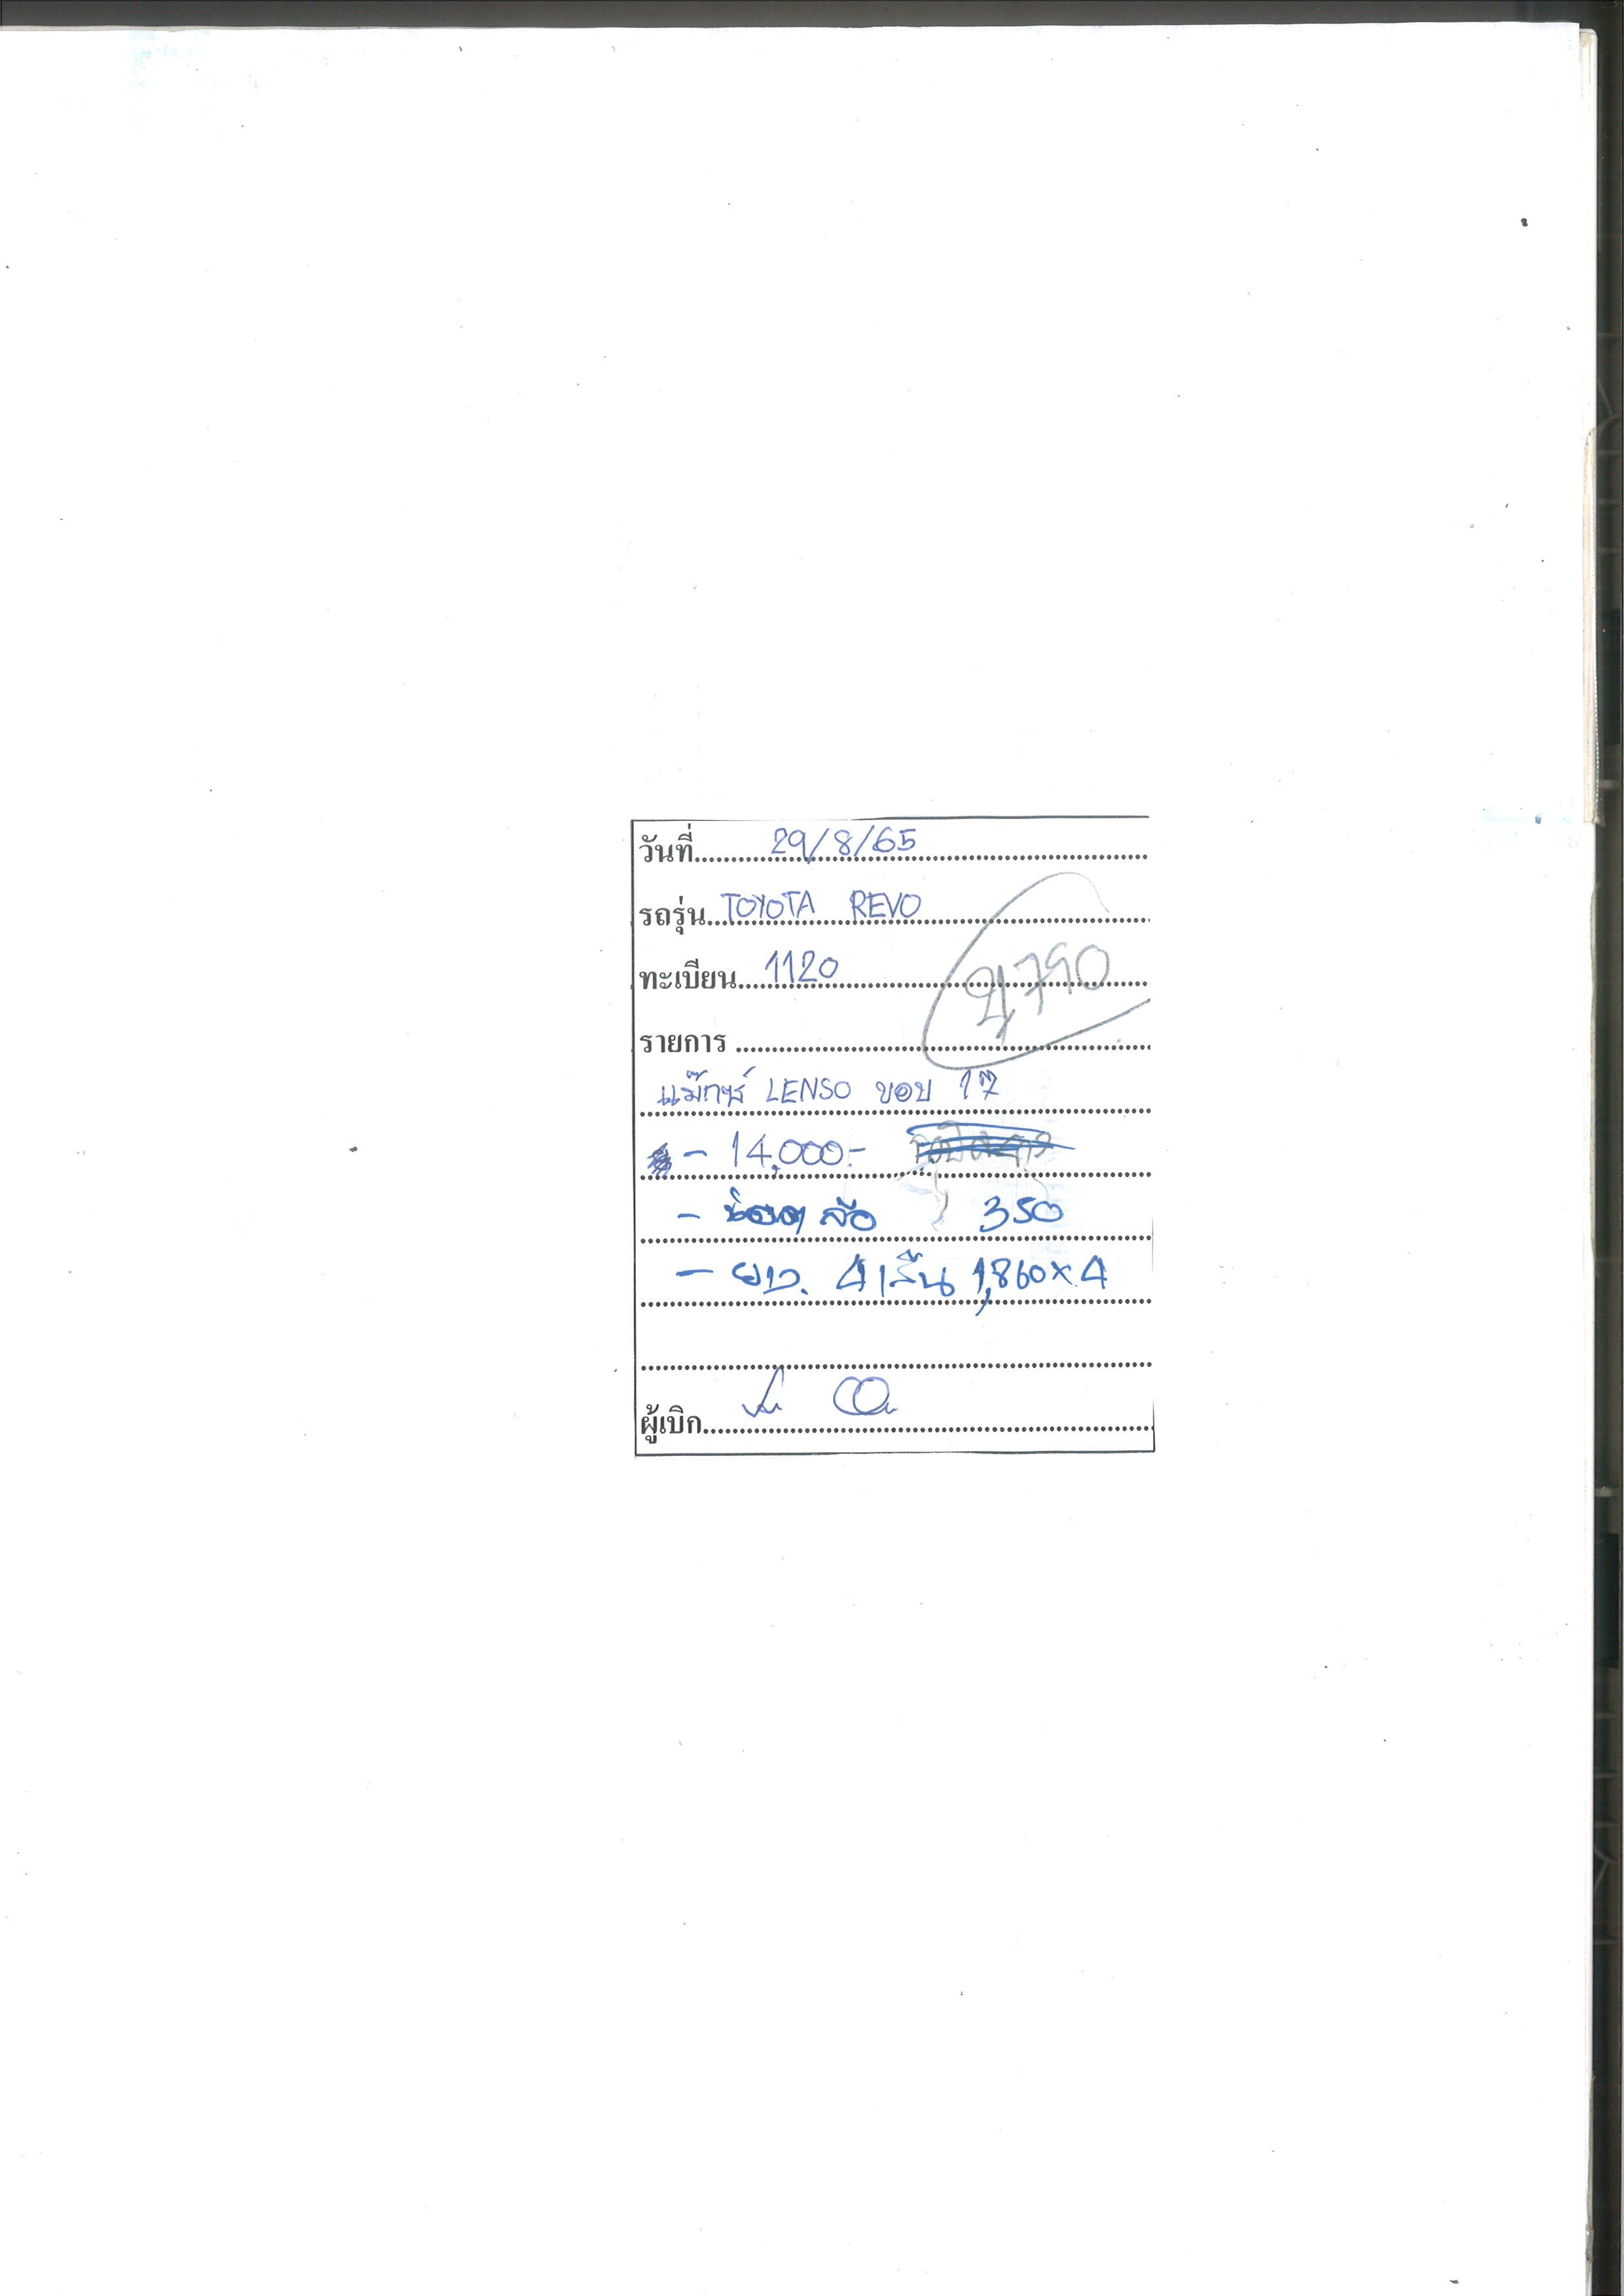 วันที่ 29/8/65
รถรุ่น TOYOTA REVO
ทะเบียน 1120
21,790
รายการ
แม๊กซ์ LENSO ขอบ 17
- 14,000.-
- น๊อต ล้อ 350
- ยาง 4 เส้น 1,860 x 4
ผู้เบิก